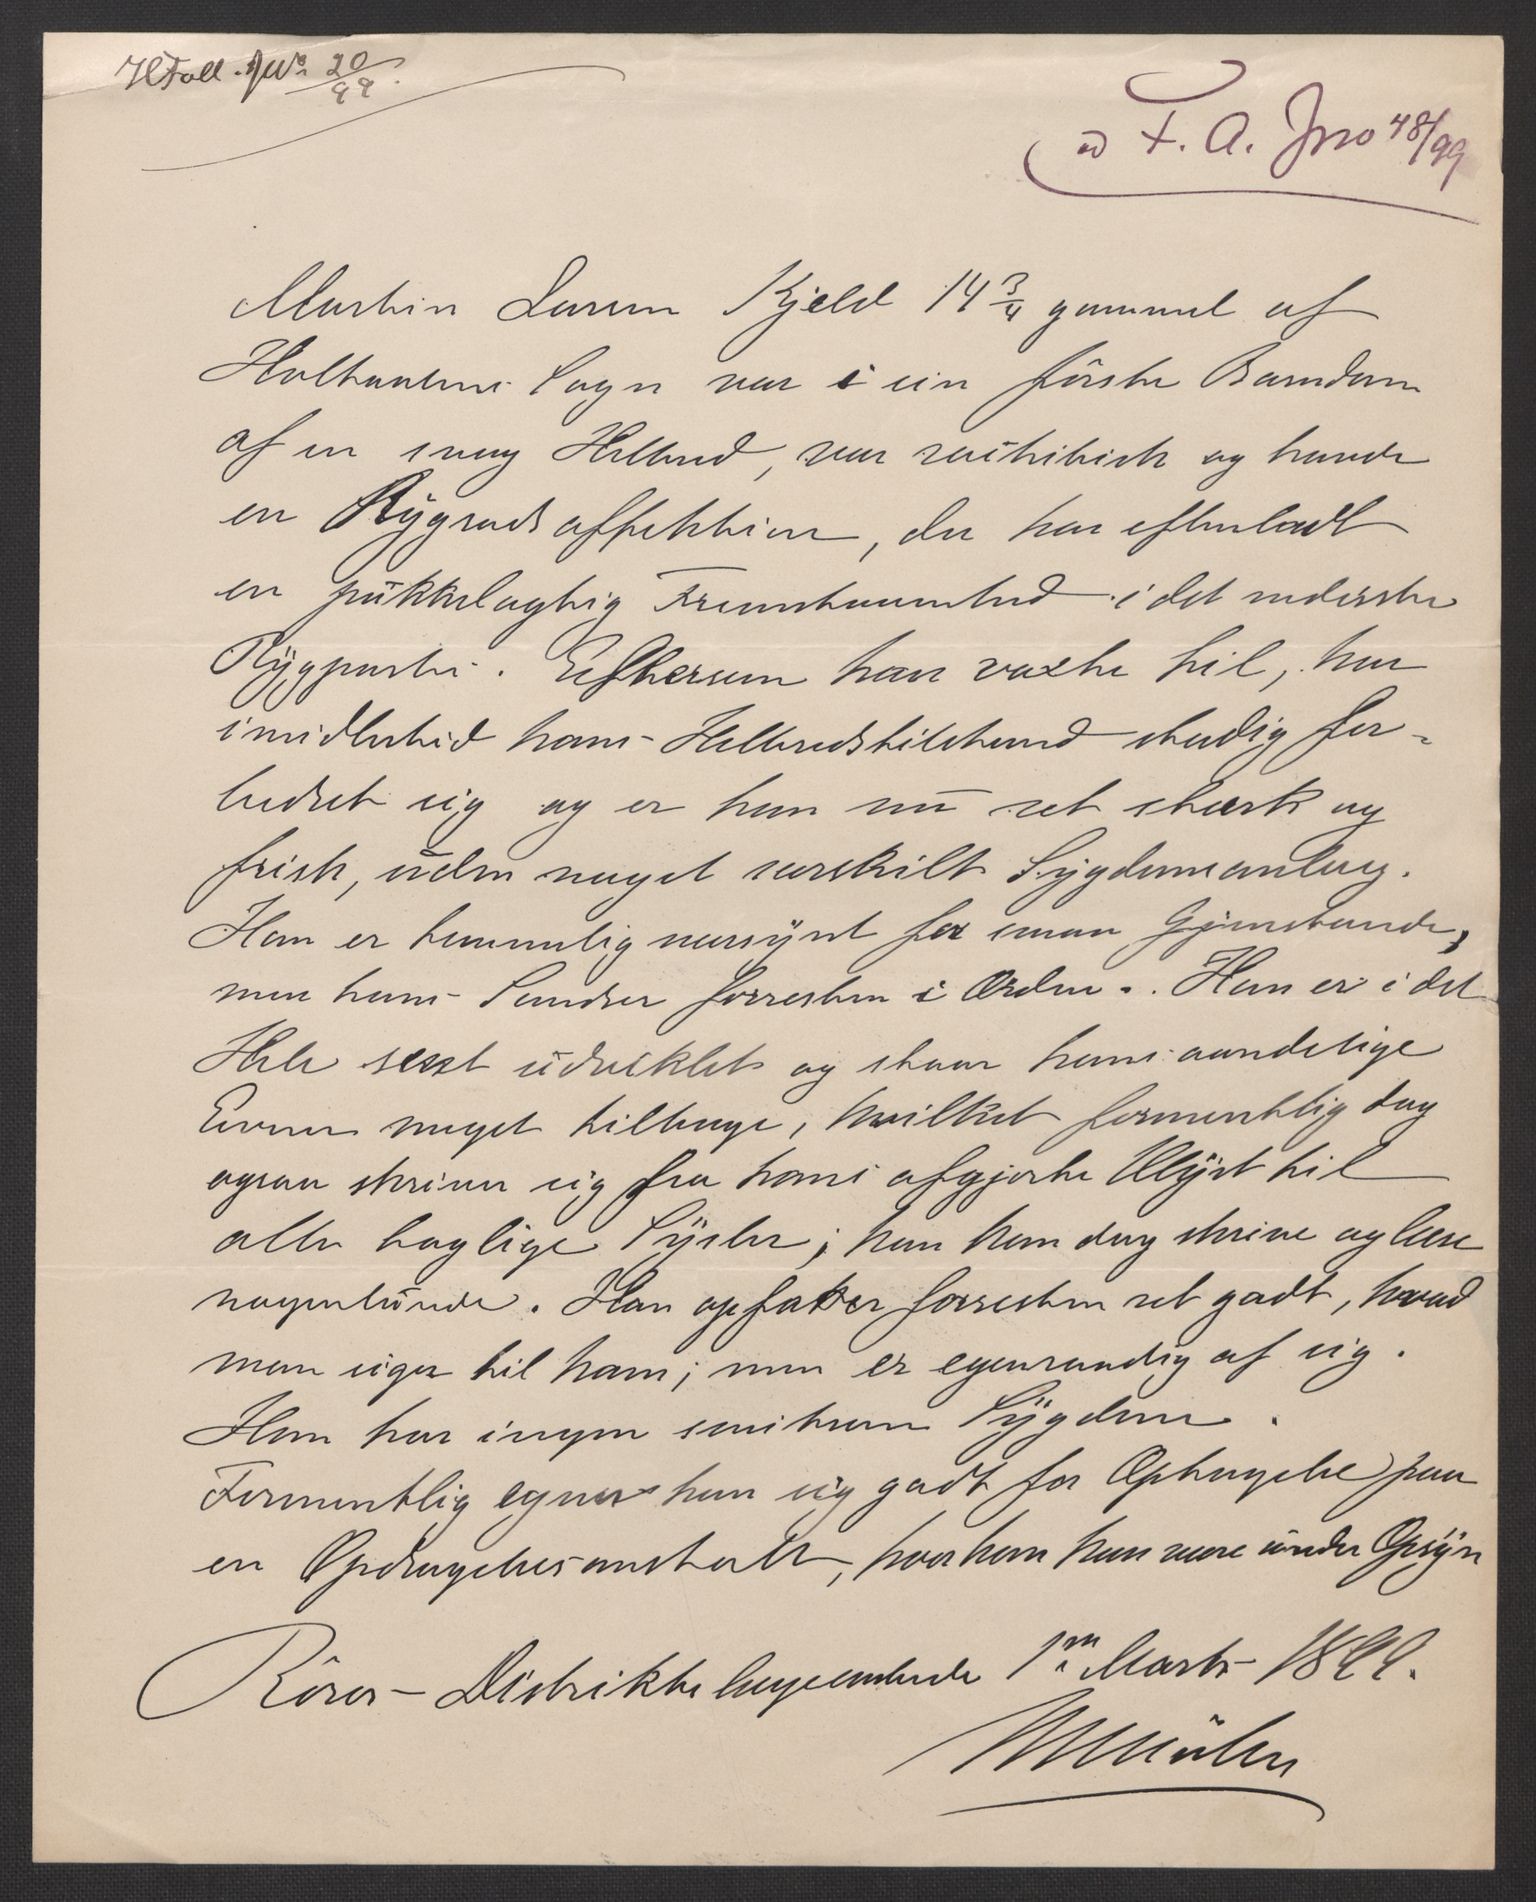 HFoll. JNo 20/99.
ad F. A. Jno 48/99
Martin Larsen Kjeld 14 3/4 gammel af
Holtaalens Sogn var i sin förste Barndom
af en svag Helbred, var rachitisk og havde
en Rygradsaffektion, der har efterladt
en pukkelagtig Fremstaaenhed i det nederste
Rygparti. Eftersom han vaxte til, har
imidlertid hans Helbredstilstand stadig for-
bedret sig og er han nu ret stærk og
frisk, uden noget særskilt Sygdomsanlæg.
Han er temmelig nærsynt for smaa Gjenstande,
men hans Sandser forresten i Orden. Han er i det
Hele seent udviklet og staar hans aandelige
Evner meget tilbage, hvilket formentlig dog
ogsaa skriver sig fra hans afgjorte Ulyst til
alle boglige Sysler; han kan dog skrive og læse
nogenlunde. Han opfatter forresten ret godt, hvad
man siger til ham; men er egenraadig af sig.
Han har ingen smitsom Sygdom.
Formentlig egner han sig godt for Optagelse paa
en Opdragelsesanstalt, hvor han kan være under Opsyn
Röros Distriktslægeembede 1ste Marts 1899.